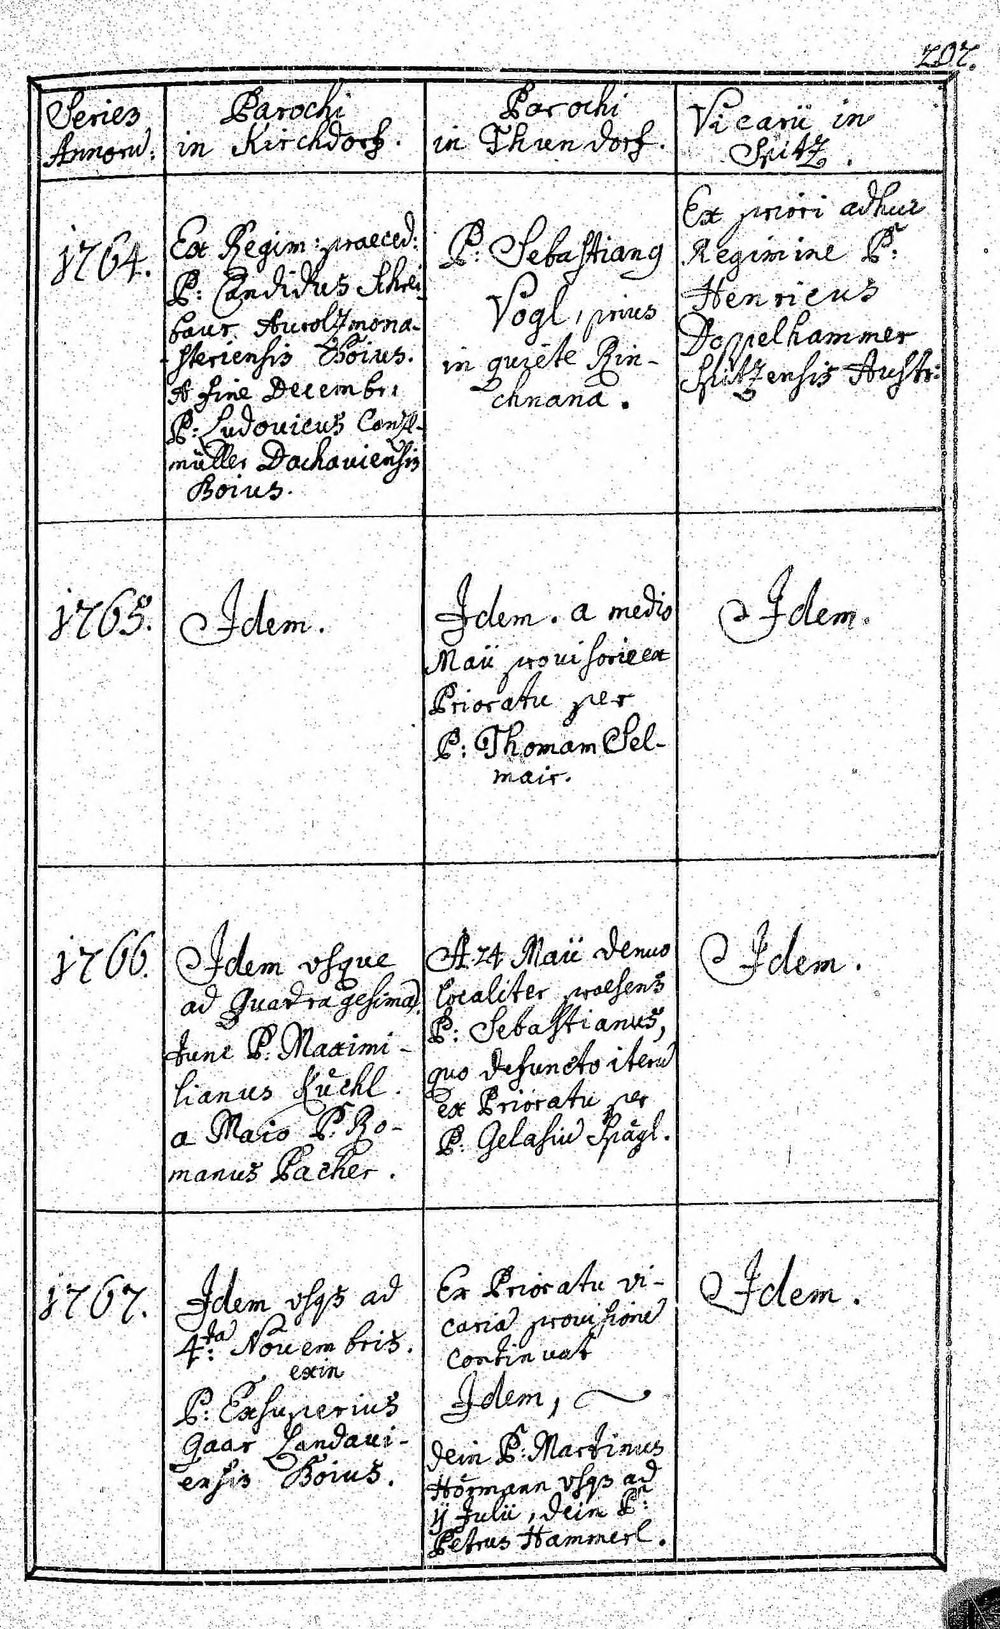 202.
Series
Annorū:
Parochi
in Kirchdorf.
Parochi
in Thundorf.
Vicarii in
Spitz.
1764.
Ex Regim: praeced:
P: Candidus Schrei-
baur Auroltzmona-
steriensis Boius.
A fine Decembr:
P: Ludovicus
müller Dachaviensis
Boius.
P: Sebastiang
Vogl, prius
in quiete Rin-
chnana.
Ex priori adhuc
Regimine P:
Henricus
Doppelhammer
Spitzensis Austr:
1765.
Idem.
Idem. a medio
Maii provisorie ex
Prioratu per
P: Thomam Sel-
mair.
Idem.
1766.
Idem usque
ad Quadragesimā,
tunc P: Maximi-
lianus Kuchl.
a Maio P: Ro-
manus Pacher.
A 24 Maii denuo
localiter praesens
P: Sebastianus,
quo defuncto iterū
ex Prioratu per
P: Gelasiū Spägl.
Idem.
1767.
Idem usqȝ ad
4:ta Novembris.
exin
P: Exsuperius
Gaar Landavi-
ensis Boius.
Ex Prioratu vi-
cariā provisionē
continuat
Idem,
dein P: Martinus
Hörmann usqȝ ad
ij Julii, dein P:
Petrus Hammerl.
Idem.